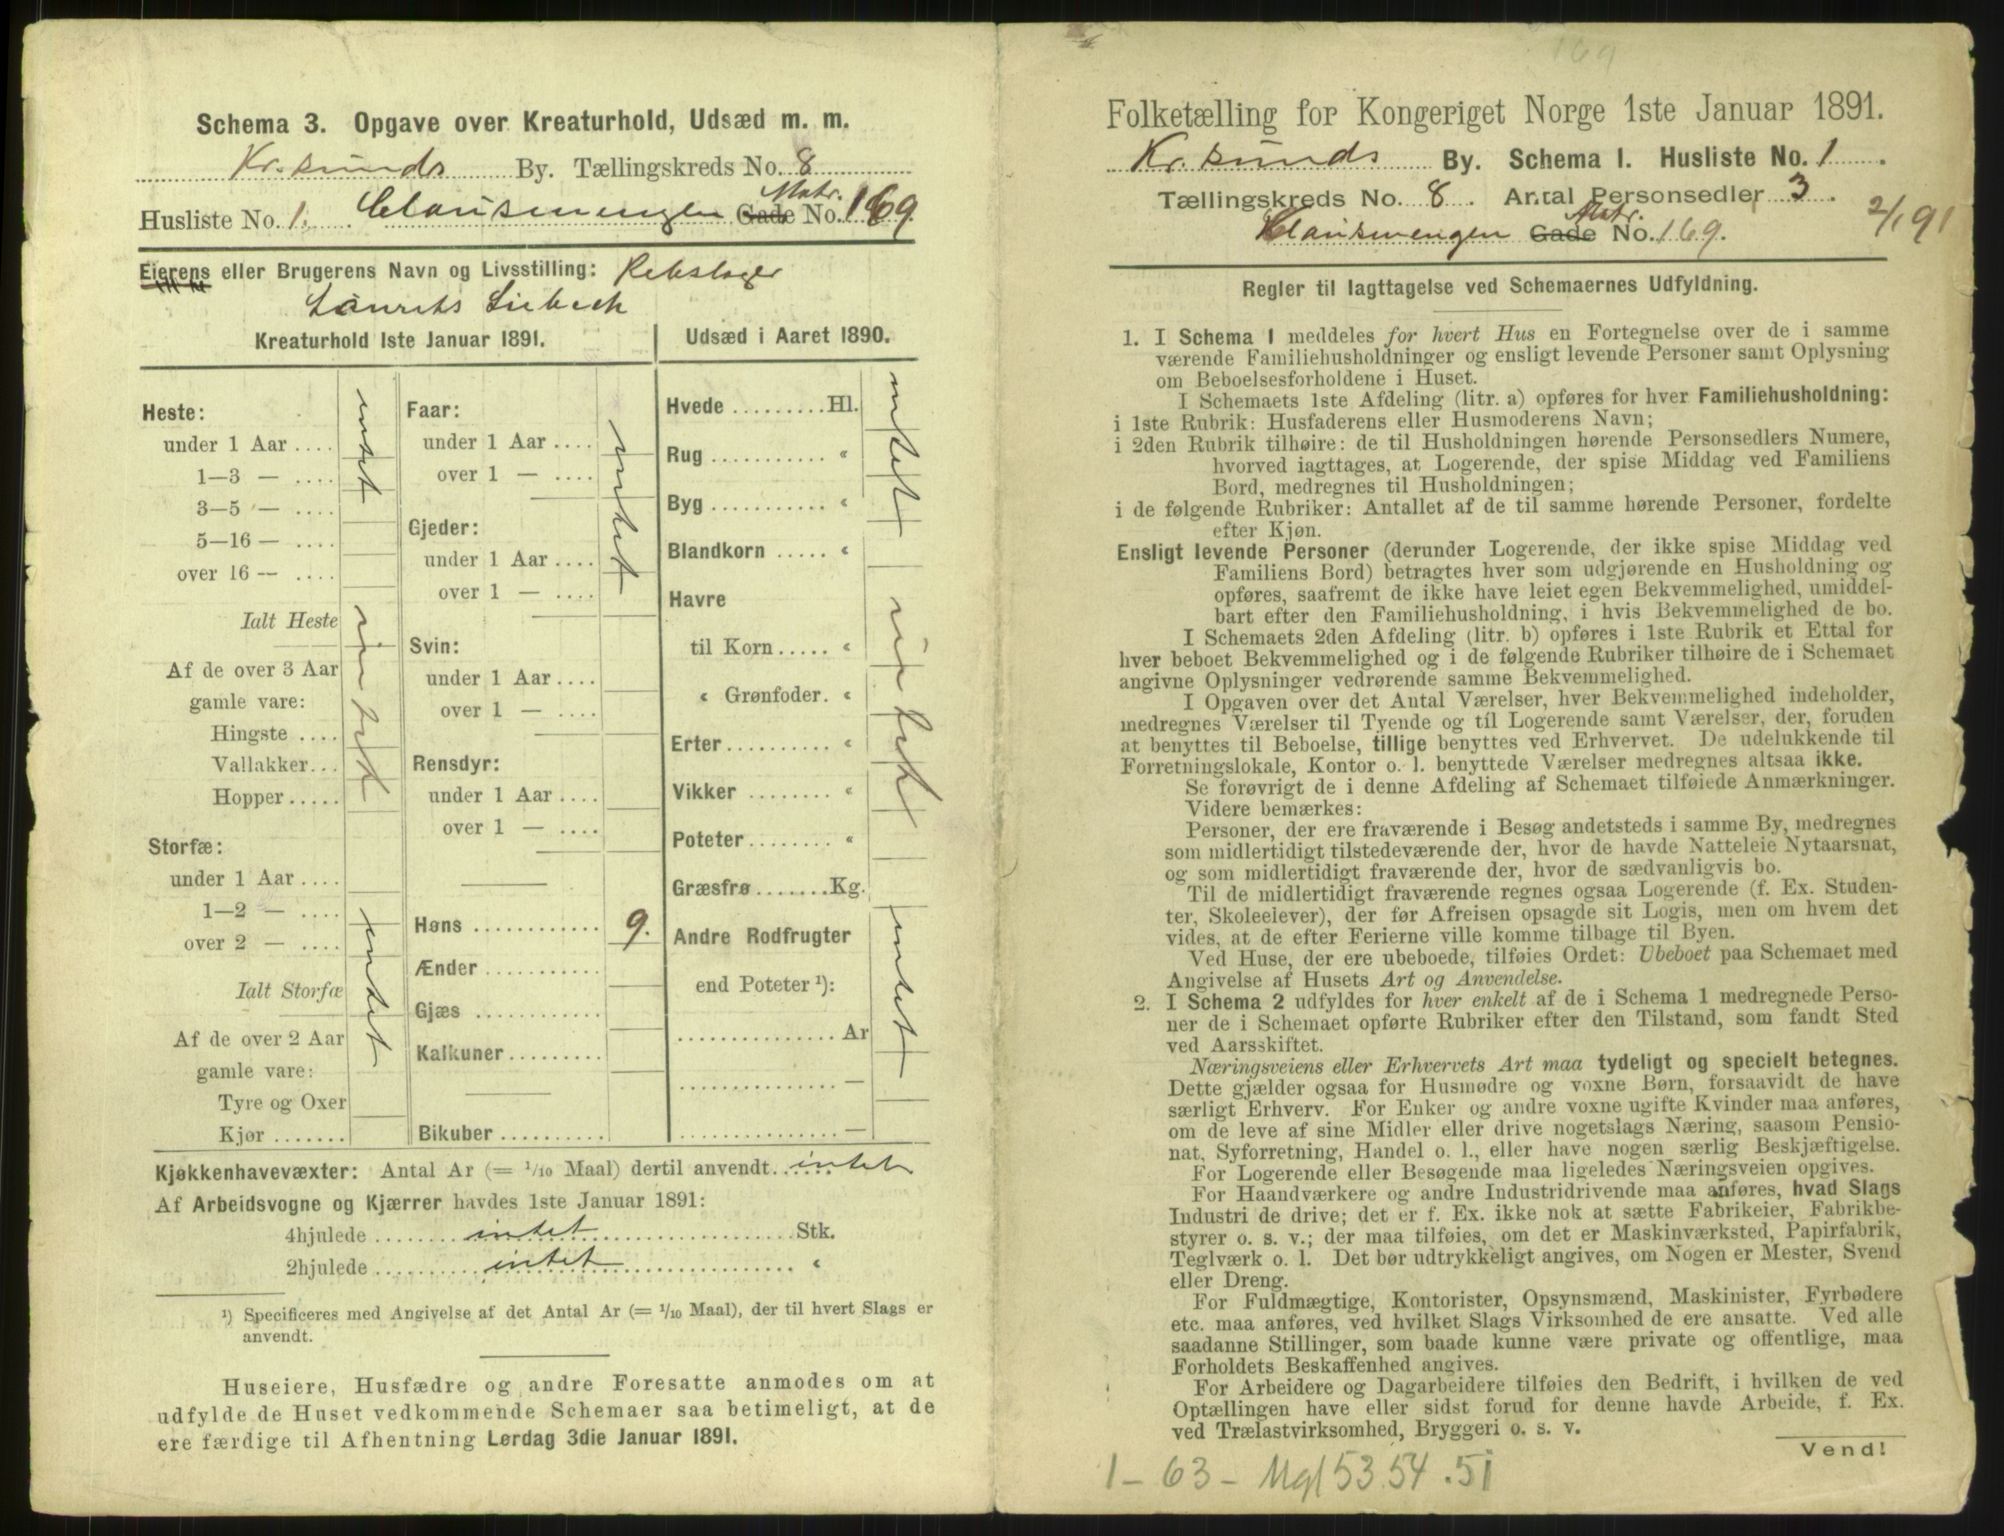 Schema 3. Opgave over Kreaturhold, Udsæd m. m.
Kr.sunds By. Tællingskreds No. 8
Matr.
Husliste No. 1. Clausenengen Gade No. 169.
Eierens eller Brugerens Navn og Livsstilling: Rebslager
Laurits Liebeck
Kreaturhold 1ste Januar 1891.
Heste:
under 1 Aar ....
1—3 — ....
3—5 — ....
5—16 — ....
over 16 — ....
Ialt Heste
Af de over 3 Aar
gamle vare:
Hingste ....
Vallakker...
Hopper .....
intet
intet
Storfæ:
under 1 Aar ....
1—2 — ....
over 2 — ....
Ialt Storfæ
Af de over 2 Aar
gamle vare:
Tyre og Oxer
Kjør .......
intet
Faar:
under 1 Aar ....
over 1 — ....
Gjeder:
under 1 Aar ....
over 1 — ....
intet
Svin:
under 1 Aar ....
over 1 — ....
Rensdyr:
under 1 Aar ....
over 1 — ....
Høns ............ 9.
Ænder ...........
Gjæs ............
Kalkuner.........
Bikuber ..........
Udsæd i Aaret 1890.
Hvede .........Hl.
Rug ........... "
Byg ........... "
Blandkorn ..... "
Havre
til Korn ..... "
" Grønfoder. "
Erter.......... "
Vikker ........ "
Poteter........ "
Græsfrø .......Kg.
Andre Rodfrugter
end Poteter ¹):
...............Ar
............... —
............... —
intet
intet
intet
Kjøkkenhavevæxter: Antal Ar (= 1/10 Maal) dertil anvendt. intet
Af Arbeidsvogne og Kjærrer havdes 1ste Januar 1891:
4hjulede ........ intet ....................Stk.
2hjulede ........ intet .................... "
¹) Specificeres med Angivelse af det Antal Ar (= 1/10 Maal), der til hvert Slags er
anvendt.
Huseiere, Husfædre og andre Foresatte anmodes om at
udfylde de Huset vedkommende Schemaer saa betimeligt, at de
ere færdige til Afhentning Lørdag 3die Januar 1891.
169
Folketælling for Kongeriget Norge 1ste Januar 1891.
Kr.sunds By. Schema 1. Husliste No. 1 .
Tællingskreds No. 8 . Antal Personsedler 3 .
Matr.
Clausenengen Gade No. 169.
2/1 91
Regler til Iagttagelse ved Schemaernes Udfyldning.
1. I Schema 1 meddeles for hvert Hus en Fortegnelse over de i samme
værende Familiehusholdninger og ensligt levende Personer samt Oplysning
om Beboelsesforholdene i Huset.
I Schemaets 1ste Afdeling (litr. a) opføres for hver Familiehusholdning:
i 1ste Rubrik: Husfaderens eller Husmoderens Navn;
i 2den Rubrik tilhøire: de til Husholdningen hørende Personsedlers Numere,
hvorved iagttages, at Logerende, der spise Middag ved Familiens
Bord, medregnes til Husholdningen;
i de følgende Rubriker: Antallet af de til samme hørende Personer, fordelte
efter Kjøn.
Ensligt levende Personer (derunder Logerende, der ikke spise Middag ved
Familiens Bord) betragtes hver som udgjørende en Husholdning og
opføres, saafremt de ikke have leiet egen Bekvemmelighed, umiddel-
bart efter den Familiehusholdning, i hvis Bekvemmelighed de bo.
I Schemaets 2den Afdeling (litr. b) opføres i 1ste Rubrik et Ettal for
hver beboet Bekvemmelighed og i de følgende Rubriker tilhøire de i Schemaet
angivne Oplysninger vedrørende samme Bekvemmelighed.
I Opgaven over det Antal Værelser, hver Bekvemmelighed indeholder,
medregnes Værelser til Tyende og til Logerende samt Værelser, der, foruden
at benyttes til Beboelse, tillige benyttes ved Erhvervet. De udelukkende til
Forretningslokale, Kontor o. l. benyttede Værelser medregnes altsaa ikke.
Se forøvrigt de i denne Afdeling af Schemaet tilføiede Anmærkninger.
Videre bemærkes:
Personer, der ere fraværende i Besøg andetsteds i samme By, medregnes
som midlertidigt tilstedeværende der, hvor de havde Natteleie Nytaarsnat,
og som midlertidigt fraværende der, hvor de sædvanligvis bo.
Til de midlertidigt fraværende regnes ogsaa Logerende (f. Ex. Studen-
ter, Skoleelever), der før Afreisen opsagde sit Logis, men om hvem det
vides, at de efter Ferierne ville komme tilbage til Byen.
Ved Huse, der ere ubeboede, tilføies Ordet: Ubeboet paa Schemaet med
Angivelse af Husets Art og Anvendelse.
2. I Schema 2 udfyldes for hver enkelt af de i Schema 1 medregnede Perso-
ner de i Schemaet opførte Rubriker efter den Tilstand, som fandt Sted
ved Aarsskiftet.
Næringsveiens eller Erhvervets Art maa tydeligt og specielt betegnes.
Dette gjælder ogsaa for Husmødre og voxne Børn, forsaavidt de have
særligt Erhverv. For Enker og andre voxne ugifte Kvinder maa anføres,
om de leve af sine Midler eller drive nogetslags Næring, saasom Pensio-
nat, Syforretning, Handel o. l., eller have nogen særlig Beskjæftigelse.
For Logerende eller Besøgende maa ligeledes Næringsveien opgives.
For Haandværkere og andre Industridrivende maa anføres, hvad Slags
Industri de drive; det er f. Ex. ikke nok at sætte Fabrikeier, Fabrikbe-
styrer o. s. v.; der maa tilføies, om det er Maskinværksted, Papirfabrik,
Teglværk o. l. Det bør udtrykkeligt angives, om Nogen er Mester, Svend
eller Dreng.
For Fuldmægtige, Kontorister, Opsynsmænd, Maskinister, Fyrbødere
etc. maa anføres, ved hvilket Slags Virksomhed de ere ansatte. Ved alle
saadanne Stillinger, som baade kunne være private og offentlige, maa
Forholdets Beskaffenhed angives.
For Arbeidere og Dagarbeidere tilføies den Bedrift, i hvilken de ved
Optællingen have eller sidst forud for denne havde Arbeide, f. Ex.
ved Trælastvirksomhed, Bryggeri o. s. v.
Vend!
1 - 63 - Mgl 53.54.51